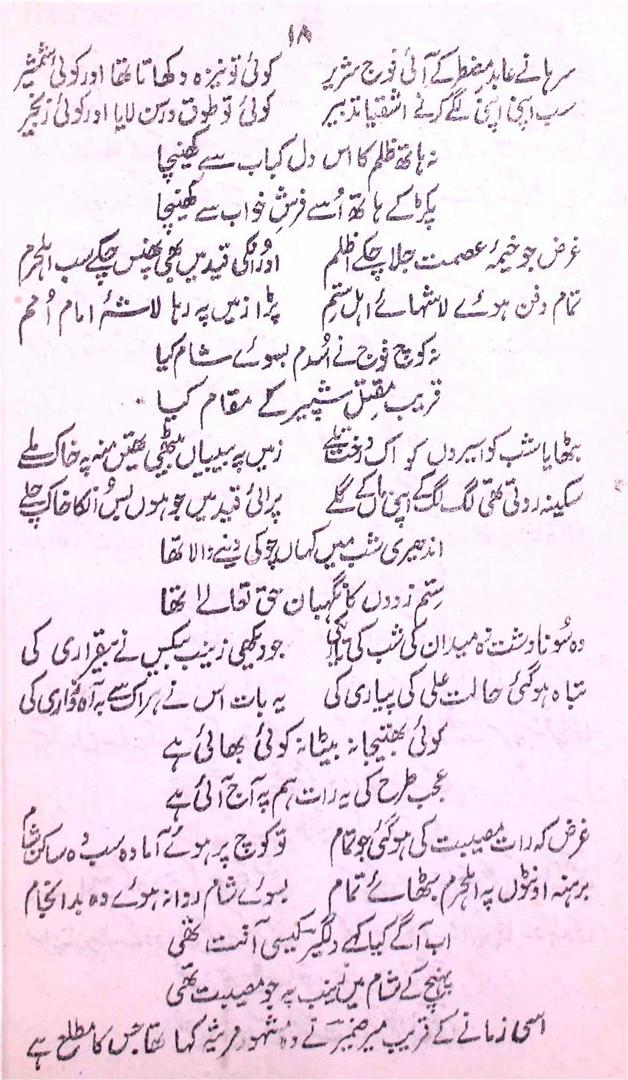 ۱۸
سرہانے عابدِ مضطر کے آئی فوجِ شریر کوئی تو نیزہ دکھاتا تھا اور کوئی شمشیر
سب اپنی اپنی لگے کرنے اشقیا تدبیر کوئی تو طوق و رسن لایا اور کوئی زنجیر
نہ ہاتھ ظلم کا اس دل کباب سے کھینچا
پکڑ کے ہاتھ اُسے فرشِ خواب سے کھینچا
غرض جو خیمۂ عصمت جلا چکے اظلم اور انکی قید میں بھی پھنس چکے سب اہلحرم
تمام دفن ہوئے لاشہائے اہل ستم پڑا زمیں پہ رہا لاشۂ امام امم
نہ کوچ فوج نے اُسدم بسوئے شام کیا
قریب مقتلِ شپیر کے مقام کیا
بٹھایا شب کو اسیروں کو اک درخت تلے زمیں پہ بیبیاں بیٹھی تھیں منہ پہ خاک ملے
سکینہ روتی تھی لگ لگ کے اپنی ماں کے گلے پرائی قید میں جو ہوں بس انکا خاک چلے
اندھیری شب میں کہاں چوکی دینے والا تھا
ستم زدوں کا نگہبان حق تعالےٰ تھا
وہ سُونا دشت وہ میدان کی شب کی تاریکی جو دیکھی زینب بیکس نے بیقراری کی
تباہ ہو گئی حالت علی کی پیاری کی یہ بات اس نے ہر اک سے بہ آہ و زاری کی
کوئی بھتیجا نہ بیٹا نہ کوئی بھائی ہے
عجب طرح کی یہ رات ہم پہ آج آئی ہے
غرض کہ رات مصیبت کی ہو گئی جو تمام تو کوچ پر ہوئے آمادہ سب وہ ساکن شام
برہنہ اونٹوں پہ اہلحرم بٹھائے تمام بسوئے شام روانہ ہوئے وہ بد انجام
اب آگے کیا کہے دلگیر کیسی آفت تھی
پہنچ کے شام میں زینب پہ جو مصیبت تھی
اسی زمانے کے قریب میر ضمیر نے وہ مشہور مرثیہ کہا تھا جس کا مطلع ہے